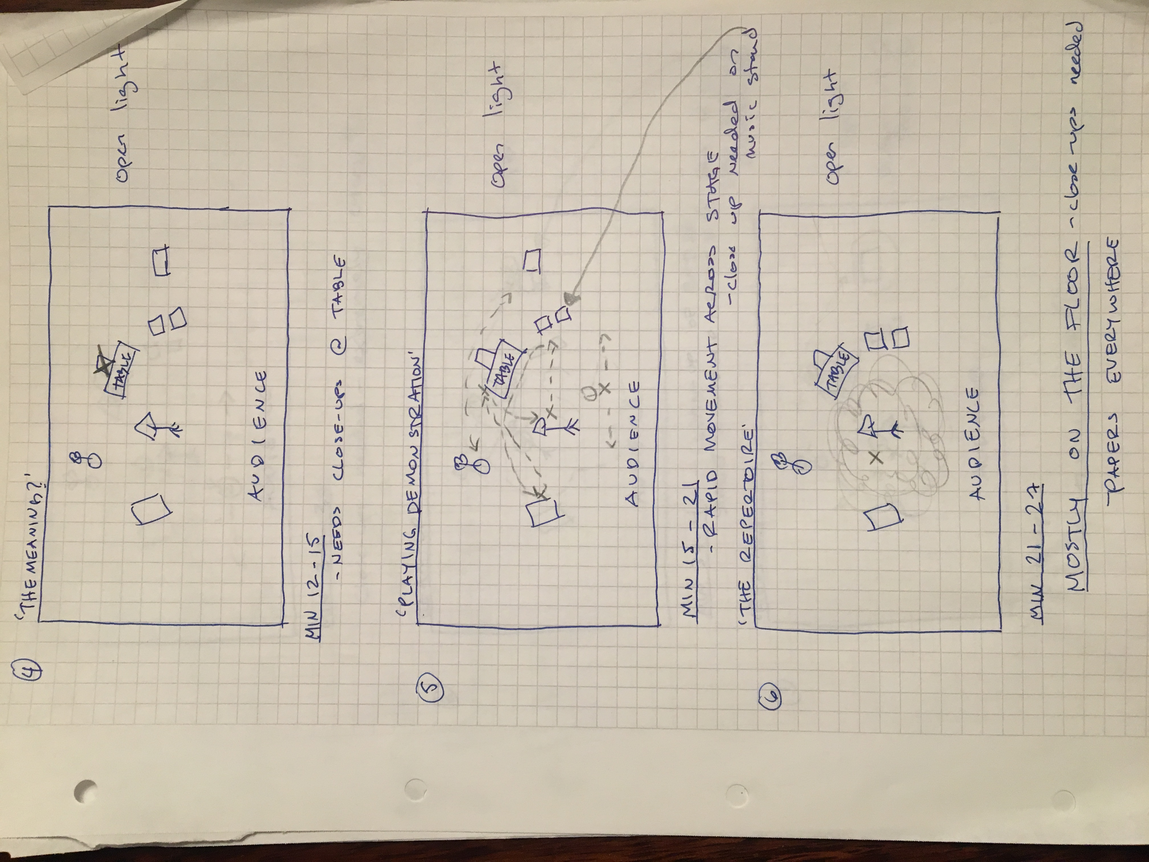 ④
'THE MEANING?'
open light
TABLE
AUDIENCE
MIN 12-15
- NEEDS CLOSE-UPS @ TABLE
⑤
'PLAYING DEMONSTRATION'
open light
TABLE
AUDIENCE
MIN 15-21
- RAPID MOVEMENT ACROSS STAGE
- close up needed on
music stand
⑥
'THE REPERTOIRE'
open light
TABLE
AUDIENCE
MIN 21-27
MOSTLY ON THE FLOOR - close-ups needed
PAPERS EVERYWHERE